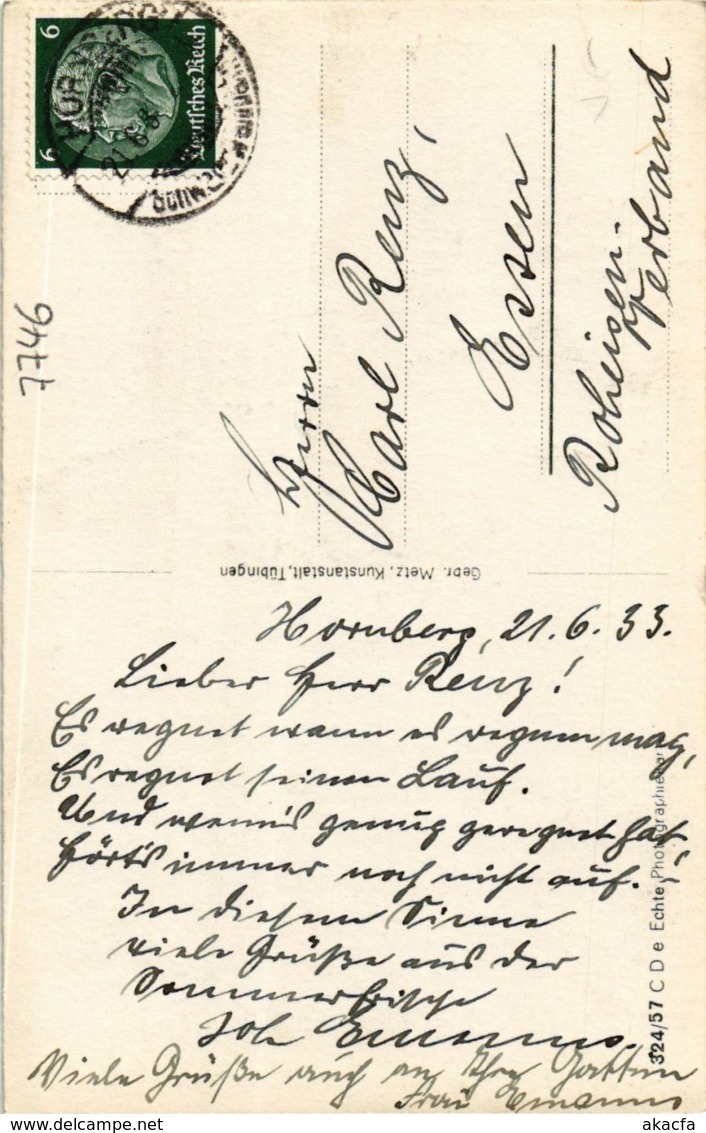 Hornberg, 21. 6. 33.
Lieber Herr Renz!
Es regnet wann es regnen mag,
Es regnet seinen Lauf.
Und wenn's genug geregnet hat,
Hört's immer noch nicht auf.
In diesem Sinne
viele Grüße aus der
Sommerfrische
Viele Grüße auch an Ihre Gattin
Frau
Herrn
Carl Renz,
Essen
Roheisen-
Verband
7746
Gebr. Metz, Kunstanstalt, Tübingen
324/57 C D e Echte Photographie
6 Deutsches Reich 6
akacfa
akacfa.com